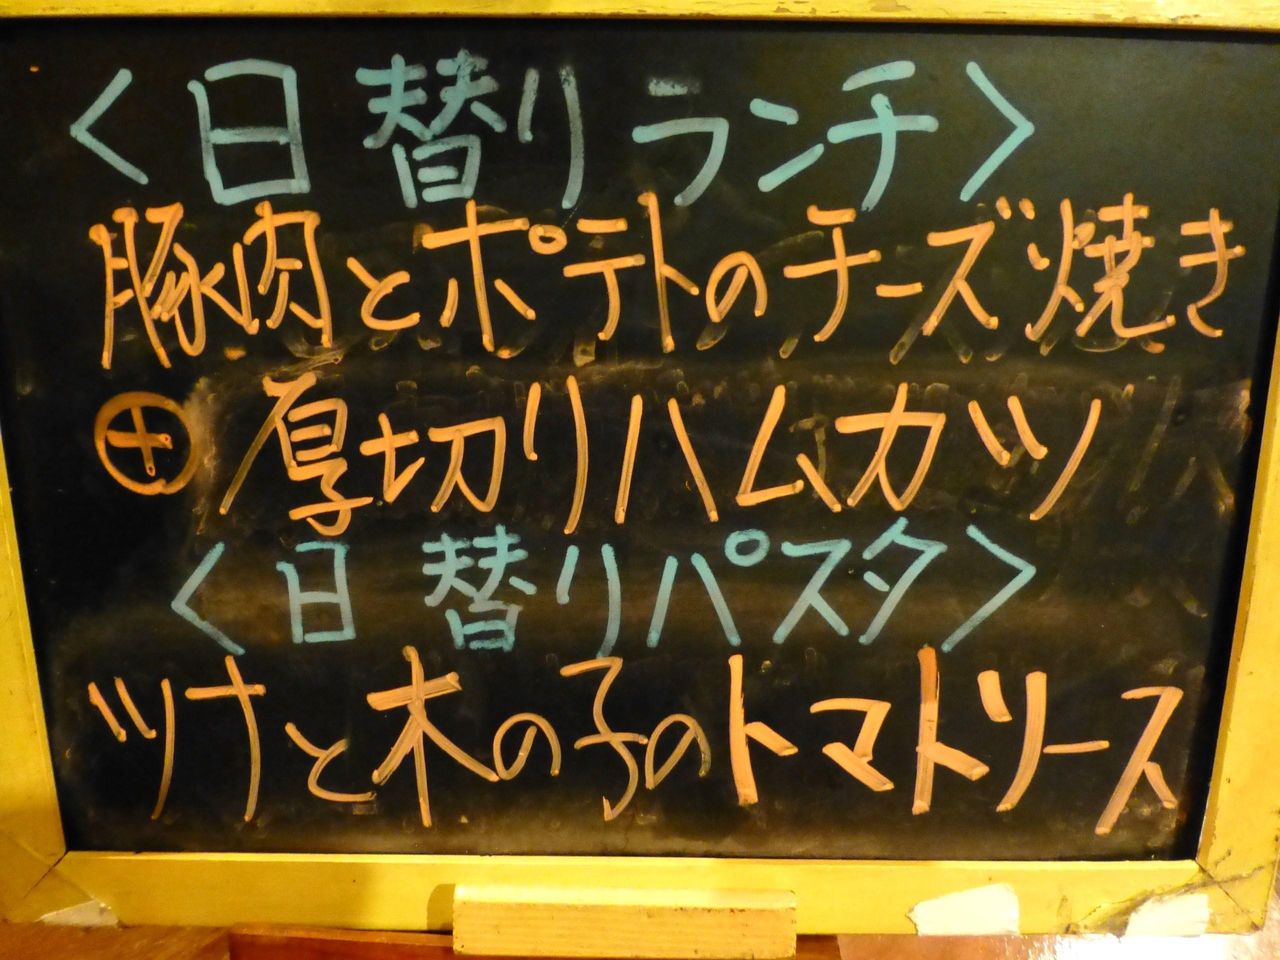 〈日替りランチ〉
豚肉とポテトのチーズ焼き
⊕ 厚切りハムカツ
〈日替りパスタ〉
ツナと木の子のトマトソース